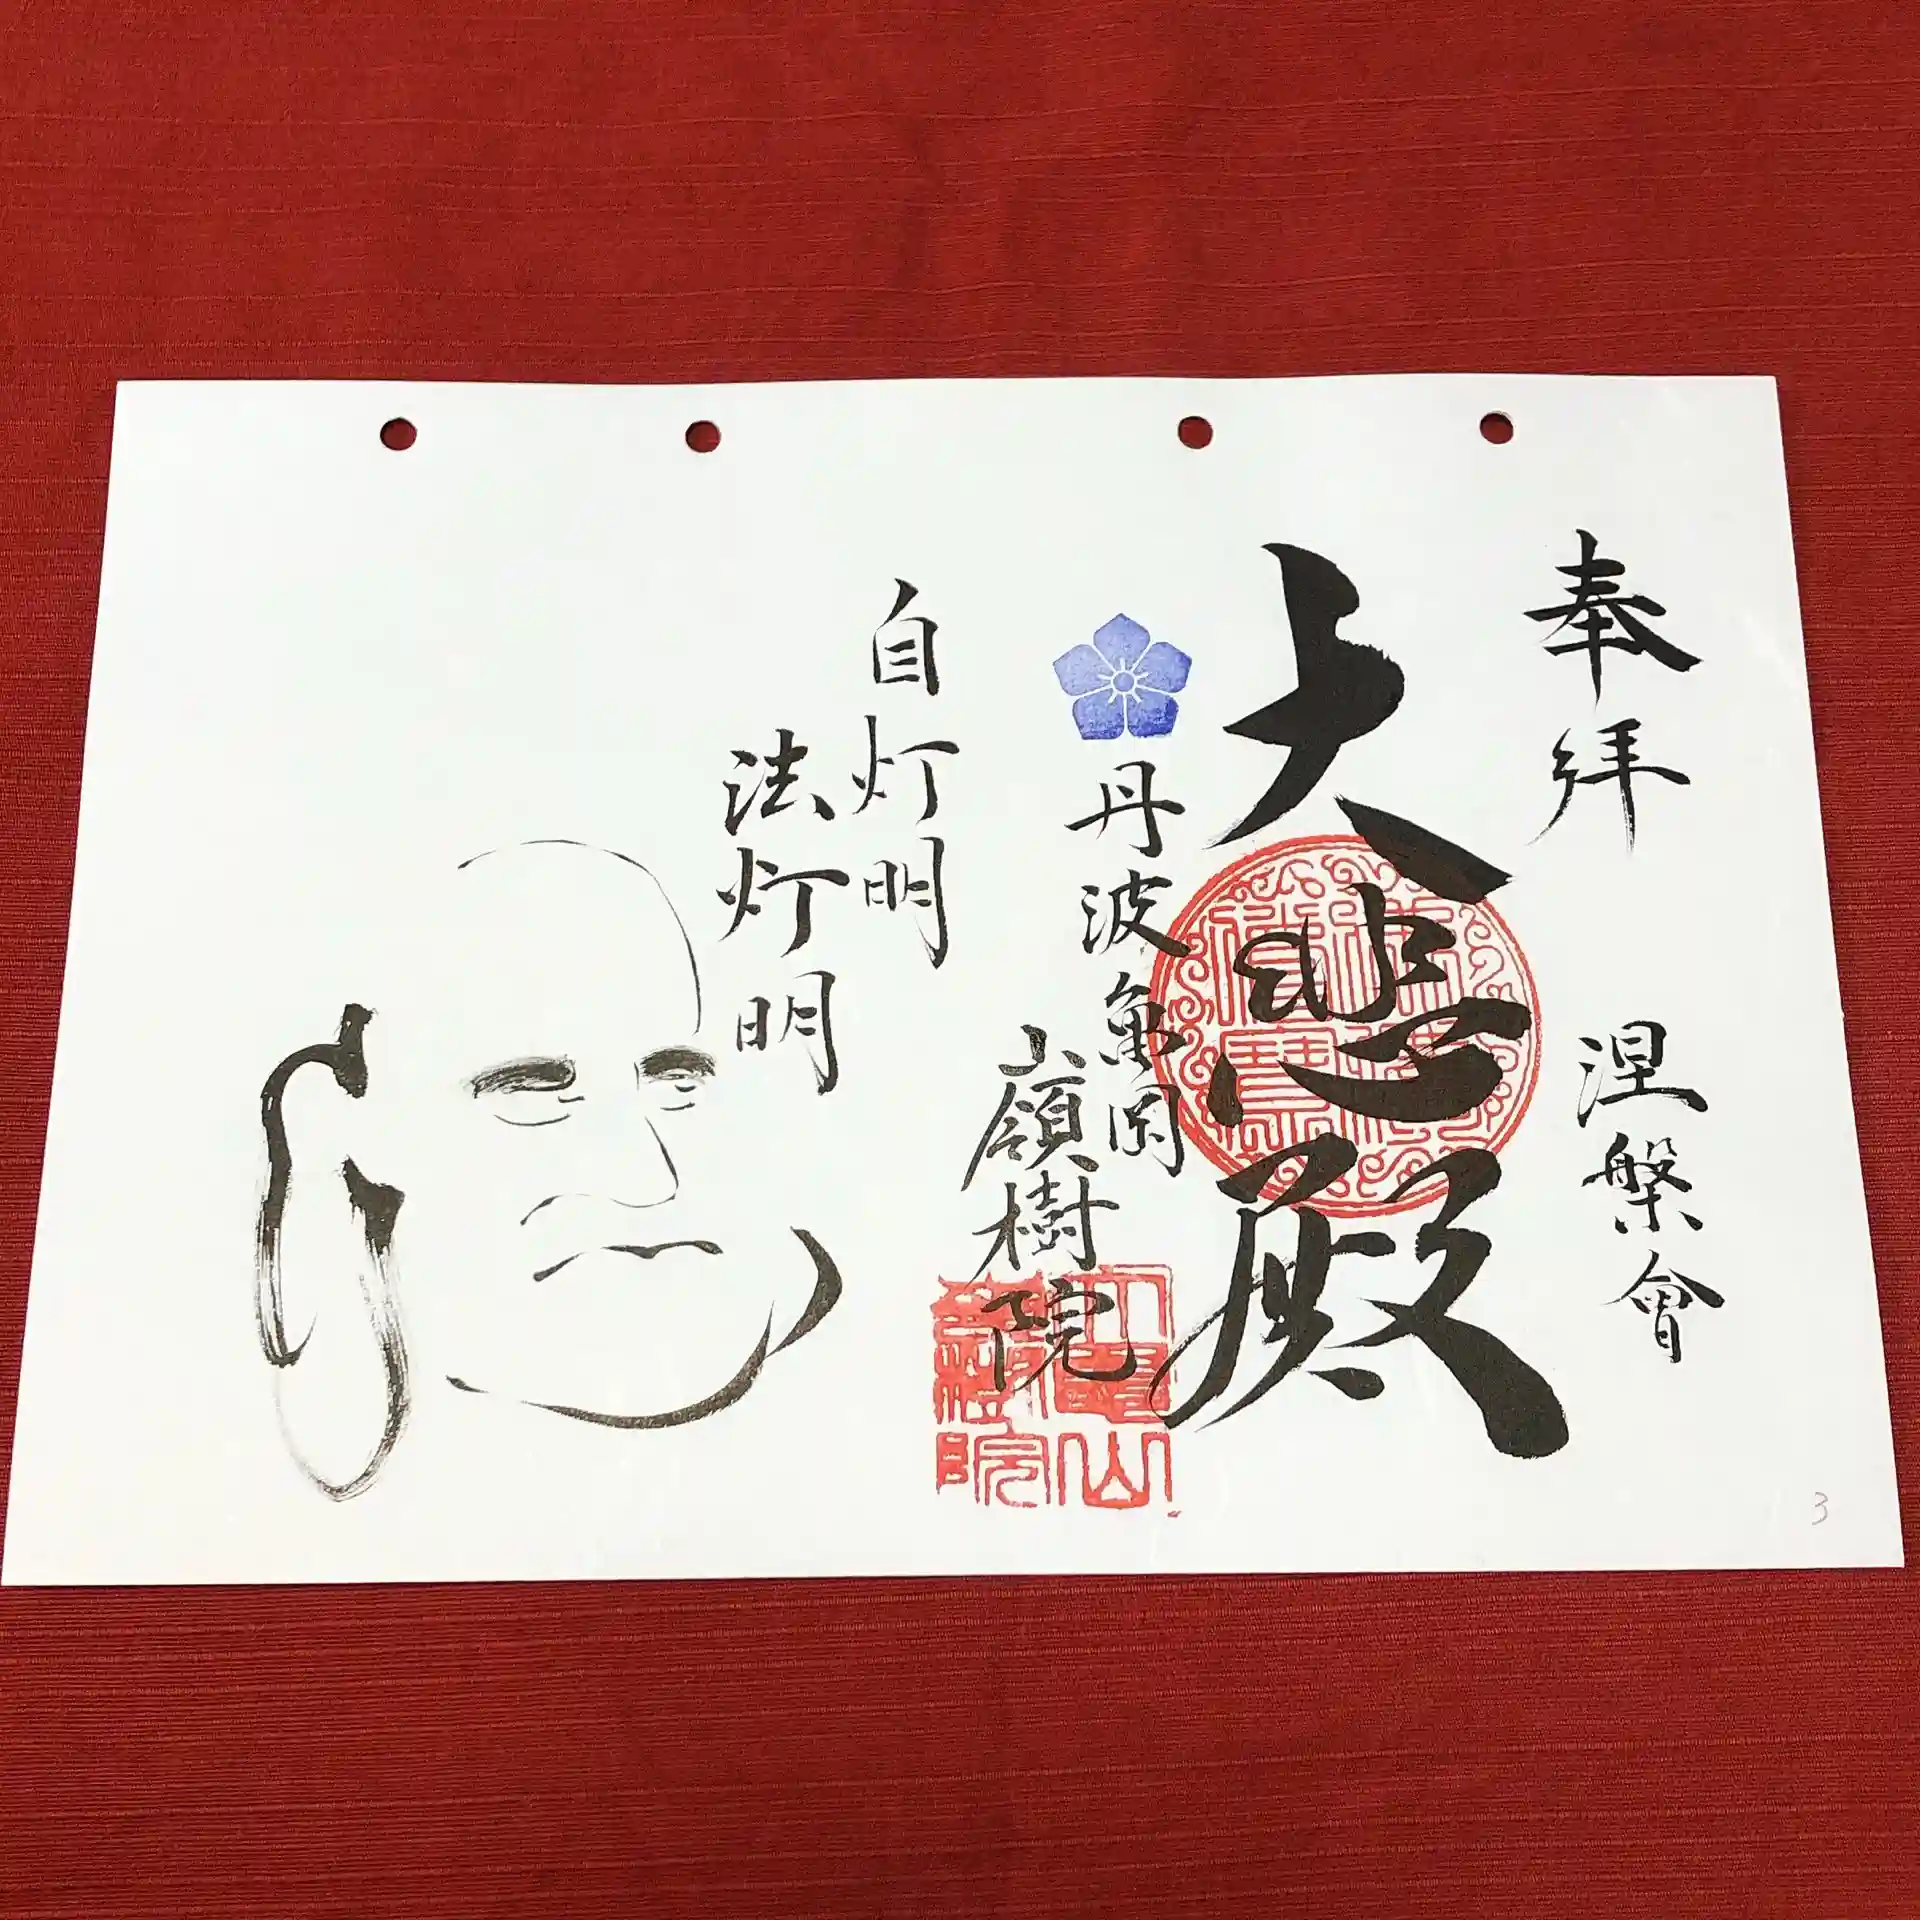 奉拜
涅槃會
大悲殿
丹波亀岡
嶺樹院
自灯明
法灯明
3